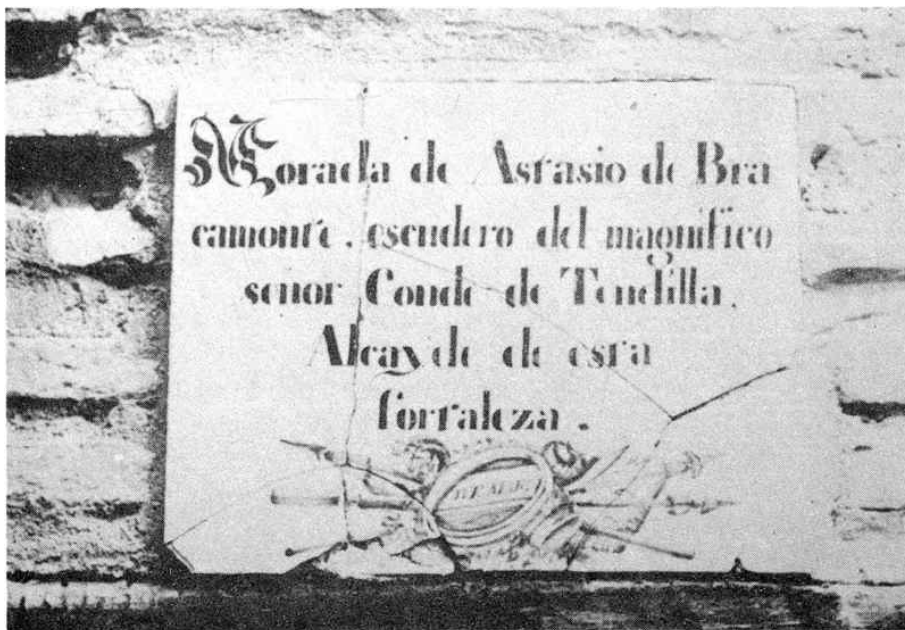 Morada de Astasio de Bra
camonte, escudero del magnifico
senor Conde de Tendilla.
Alcayde de esta
fortaleza.